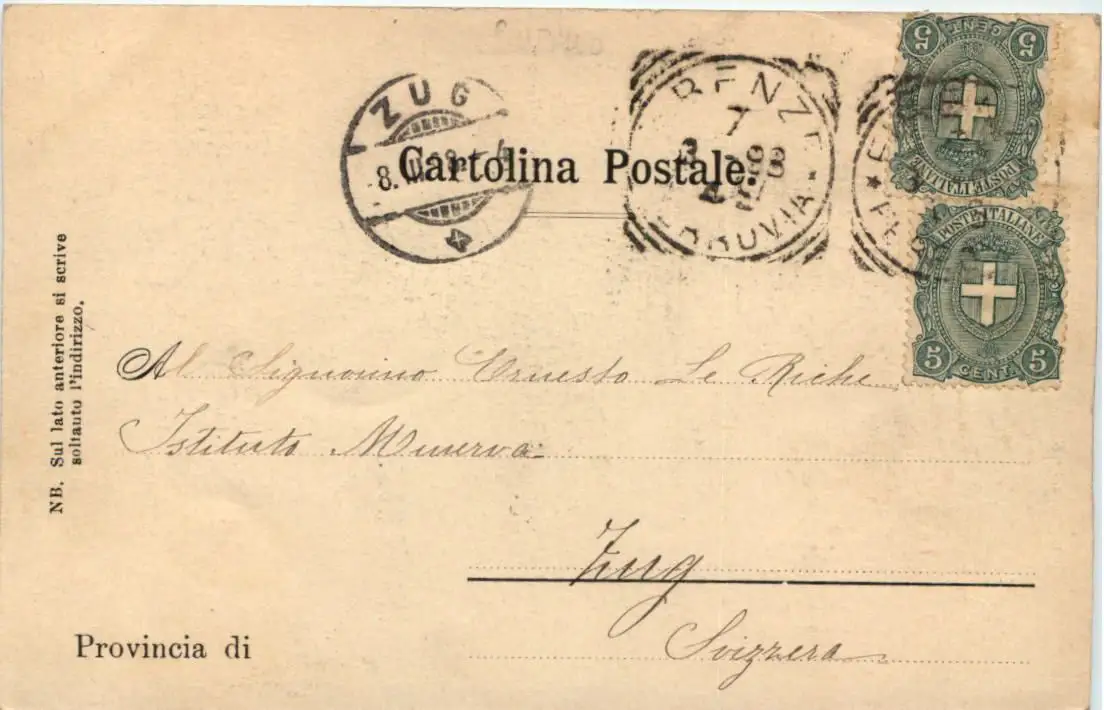 ZUG
8.
Cartolina Postale.
7
3
98
5 CENT. 5
POSTE ITALIANE
POSTE ITALIANE
5 CENT. 5
NB. Sul lato anteriore si scrive
soltanto l'indirizzo.
Al Signorino Ernesto Le Riche
Istituto Minerva
Zug
Provincia di
Svizzera